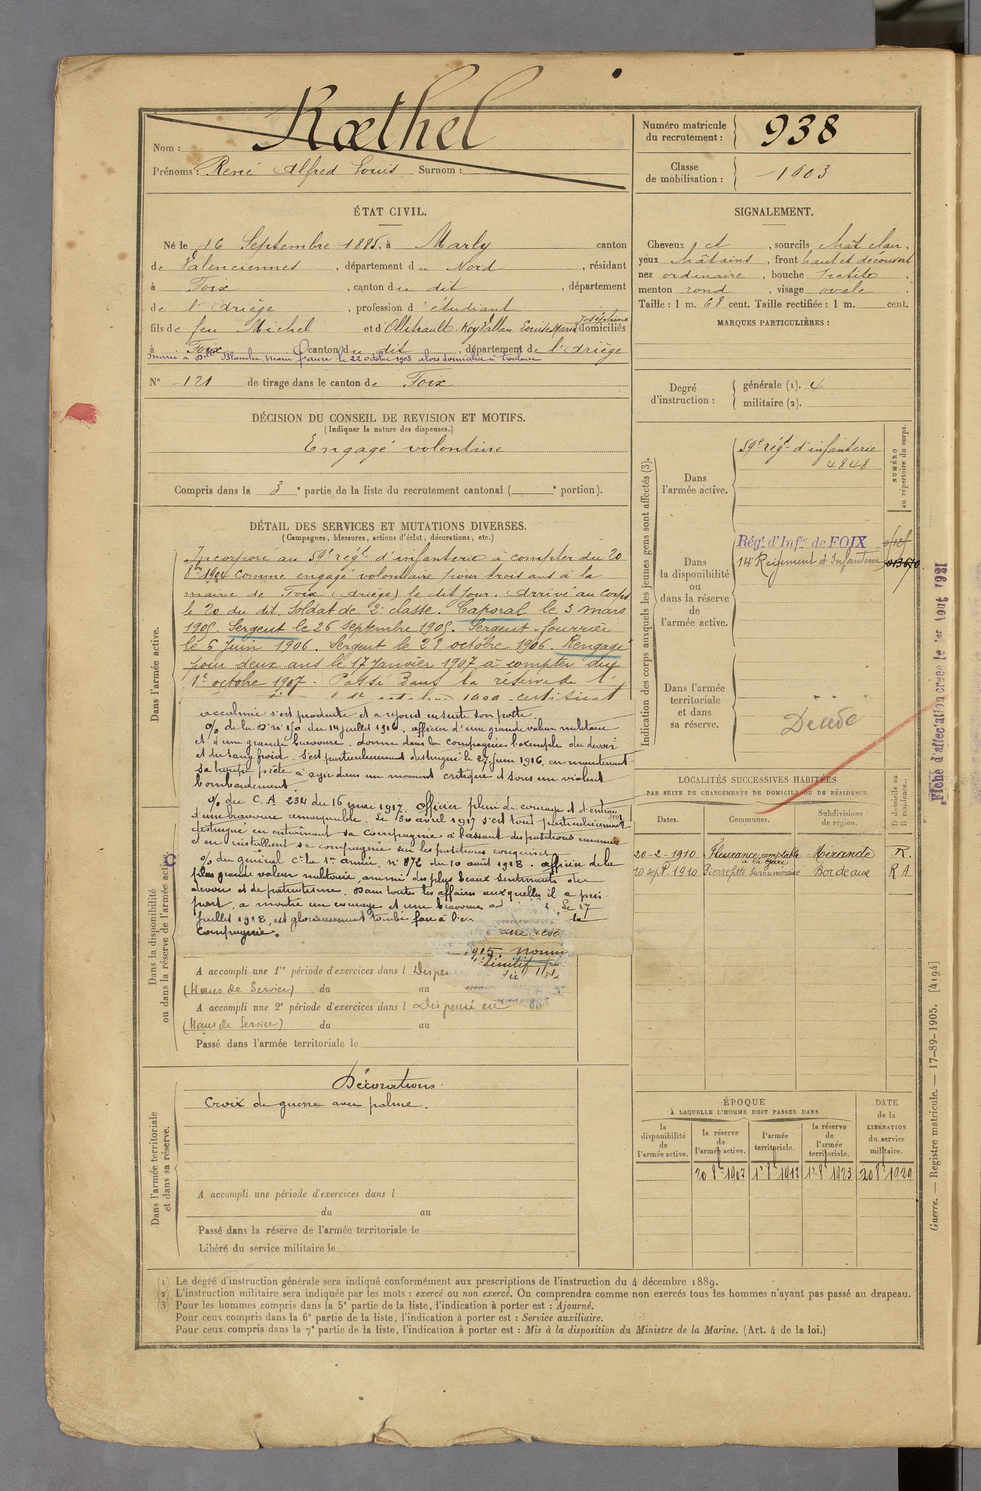 Nom : Rœthel
Prénoms : René Alfred Louis Surnom :
Numéro matricule du recrutement : 938
Classe de mobilisation : 1903
ÉTAT CIVIL.
Né le 16 Septembre 1885, à Marly canton
de Valenciennes, département du Nord, résidant
à Foix, canton du dit, département
de l'Ariège, profession d'étudiant
fils de feu Michel et d' Louise Marie Joséphine domiciliés
à Foix canton du dit, département de l'Ariège
Marié à Dlle Blanche Marie Faure le 22 octobre 1908 alors domicilié à Toulouse
N° 121 de tirage dans le canton de Foix
SIGNALEMENT.
Cheveux ct, sourcils chat clair,
yeux châtains, front haut et découvert
nez ordinaire, bouche petite,
menton rond, visage ovale.
Taille : 1 m. 68 cent. Taille rectifiée : 1 m. cent.
MARQUES PARTICULIÈRES :
Degré d'instruction : générale (1). 4
militaire (2).
DÉCISION DU CONSEIL DE REVISION ET MOTIFS.
(Indiquer la nature des dispenses.)
Engagé volontaire
Compris dans la 3e partie de la liste du recrutement cantonal ( e portion).
DÉTAIL DES SERVICES ET MUTATIONS DIVERSES.
(Campagnes, blessures, actions d'éclat, décorations, etc.)
Dans l'armée active.
Incorporé au 59e régt d'infanterie à compter du 20
8bre 1904 comme engagé volontaire pour trois ans à la
mairie de Foix (Ariège) le dit jour. Arrivé au corps
le 20 du dit. Soldat de 2e classe. Caporal le 3 mars
1905. Sergent le 26 septembre 1905. Sergent-fourrier
le 6 juin 1906. Sergent le 28 octobre 1906. Rengagé
pour deux ans le 17 janvier 1907 à compter du
1er octobre 1907. Passé dans la réserve de l'
certificat
accalmie s'est produite et a rejoint ensuite son poste.
% de la D n° 170 du 14 juillet 1916, officier d'une grande valeur militaire
et d'une grande bravoure, donne dans la compagnie l'exemple du devoir
et du sang froid. S'est particulièrement distingué le 27 juin 1916, en maintenant
sa troupe prête à agir dans un moment critique et sous un violent
bombardement.
% du C.A 234 du 16 mai 1917. Officier plein de courage et d'entrain
d'une bravoure remarquable. Le 30 avril 1917 s'est tout particulièrement
distingué en entraînant sa compagnie à l'assaut des positions ennemies
et en installant sa compagnie sur les positions conquises.
% du général Ct la 1re armée, n° 876 du 10 août 1918. Officier de la
plus grande valeur militaire, animé des plus beaux sentiments du
devoir et de patriotisme. Dans toutes les affaires auxquelles il a pris
part, a montré un courage et une bravoure ad Le 17
juillet 1918, est glorieusement tombé face à l'en la
compagnie.
1915. nomm
Dans la disponibilité ou dans la réserve de l'armée active.
A accompli une 1re période d'exercices dans l Dispe
(Haus de Service) du au
A accompli une 2e période d'exercices dans l Dispensé en
(Haus de Service) du au
Passé dans l'armée territoriale le
Dans l'armée territoriale et dans sa réserve.
Décorations.
Croix de guerre avec palme.
A accompli une période d'exercices dans l
du au
Passé dans la réserve de l'armée territoriale le
Libéré du service militaire le
Indication des corps auxquels les jeunes gens sont affectés (3).
NUMÉRO au répertoire du corps.
Dans l'armée active.
59e régt d'infanterie
4848
Dans la disponibilité ou dans la réserve de l'armée active.
Régt d'Infie de FOIX
14e Régiment d'Infanterie
Dans l'armée territoriale et dans sa réserve.
Décédé
LOCALITÉS SUCCESSIVES HABITÉES
PAR SUITE DE CHANGEMENTS DE DOMICILE OU DE RÉSIDENCE.
Dates. Communes. Subdivisions de région. D domicile ou R résidence.
20-2-1910 Fleurance, comptable à la gare Mirande R.
10 sept 1910 Pierrefitte Surnuméraire Bordeaux R A
ÉPOQUE
À LAQUELLE L'HOMME DOIT PASSER DANS
DATE de la LIBÉRATION du service militaire.
la disponibilité de l'armée active. la réserve de l'armée active. l'armée territoriale. la réserve de l'armée territoriale.
20 8bre 1907 1er 8bre 1917 1er 8bre 1923 20 8bre 1929
Fiche d'affectation créée le 1er Aout 1921
Guerre. — Registre matricule. — 17-89-1905. [4194]
(1) Le degré d'instruction générale sera indiqué conformément aux prescriptions de l'instruction du 4 décembre 1889.
(2) L'instruction militaire sera indiquée par les mots : exercé ou non exercé. On comprendra comme non exercés tous les hommes n'ayant pas passé au drapeau.
(3) Pour les hommes compris dans la 5e partie de la liste, l'indication à porter est : Ajourné.
Pour ceux compris dans la 6e partie de la liste, l'indication à porter est : Service auxiliaire.
Pour ceux compris dans la 7e partie de la liste, l'indication à porter est : Mis à la disposition du Ministre de la Marine. (Art. 4 de la loi.)